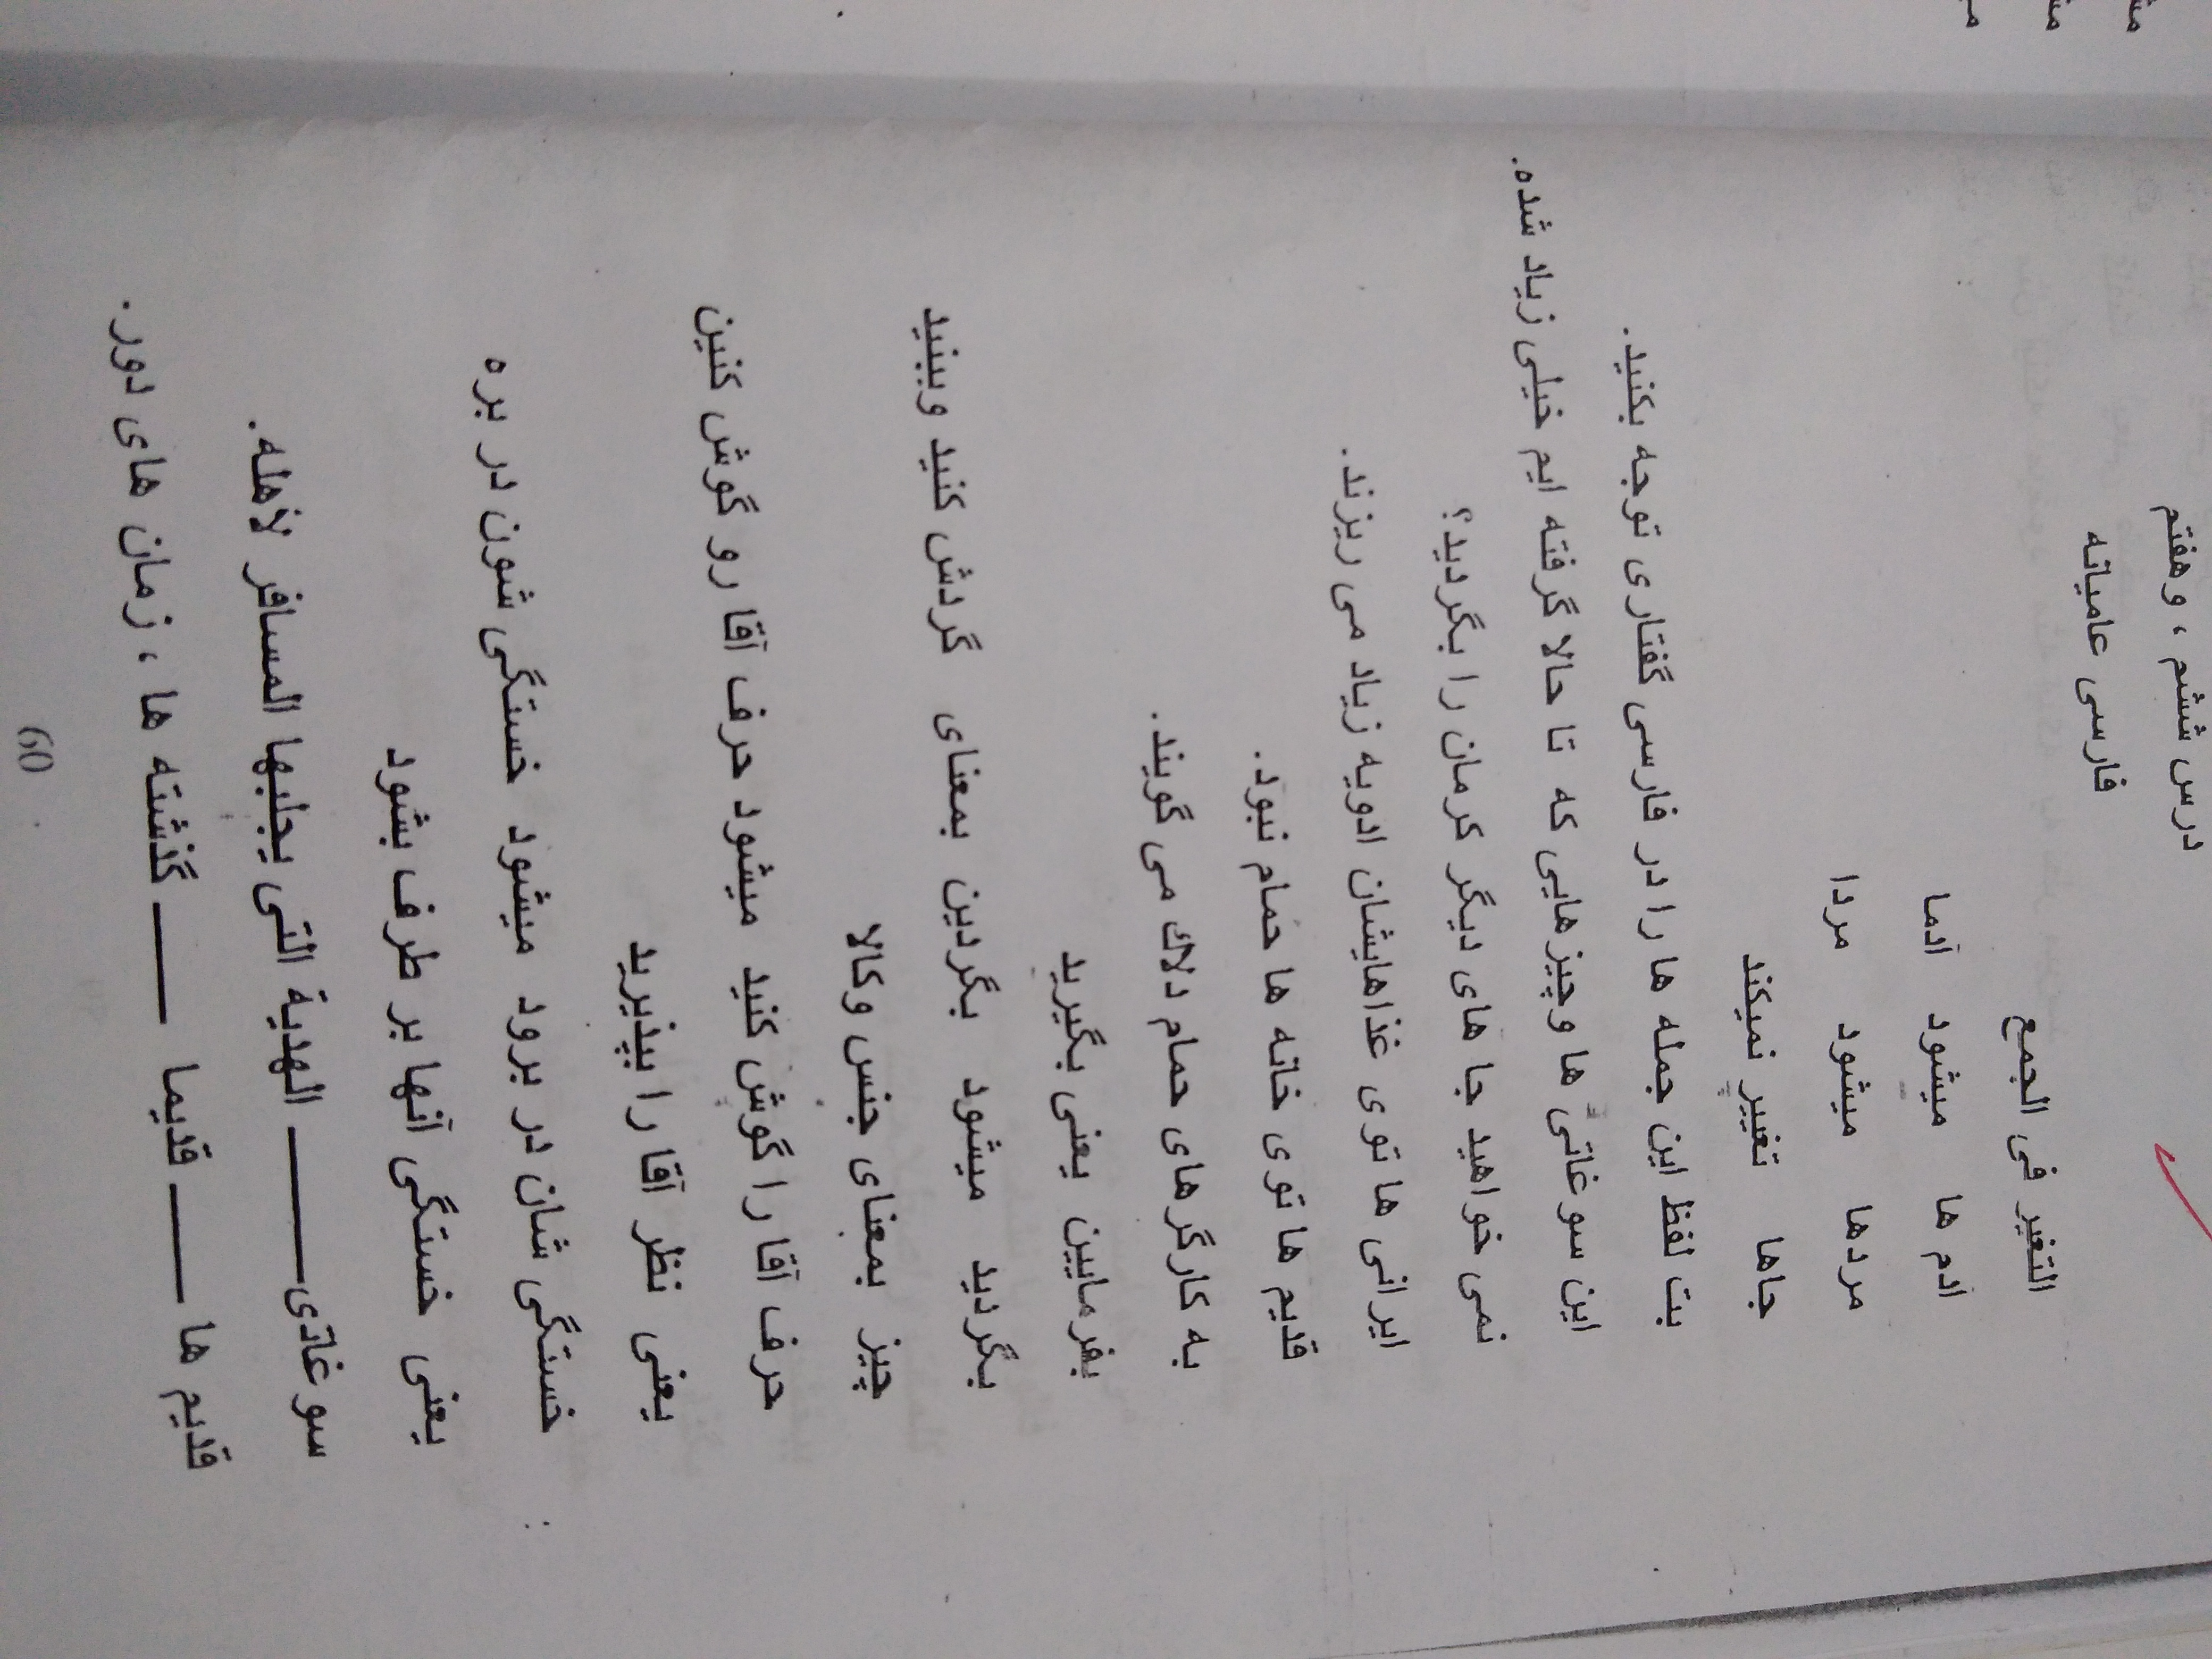 درس ششم ، وهفتم
فارسی عامیانه
التغیر فی الجمع
آدم ها میشود آدما
مردها میشود مردا
جاها تغییر نمیکند
بت لفظ این جمله ها را در فارسی گفتاری توجه بکنید.
این سوغاتی ها وچیزهایی که تا حالا گرفته ایم خیلی زیاد شده.
نمی خواهید جا های دیگر کرمان را بگردید؟
ایرانی ها توی غذاهایشان ادویه زیاد می ریزند.
قدیم ها توی خانه ها حمام نبود.
به کارگرهای حمام دلاك می گویند.
بفرمایین یعنی بگیرید
بگردید میشود بگردین بمعنای گردش کنید وببنید
چیز بمعنای جنس وکالا
حرف آقا را گوش کنید میشود حرف آقا رو گوش کنین
یعنی نظر آقا را بپذیرید
خستگی شان در برود میشود خستگی شون در بره
یعنی خستگی آنها بر طرف بشود
سوغاتی ــــــــ الهدیة التی یجلبها المسافر لأهله.
قدیم ها ــــــــ قدیما ــــــــ گذشته ها ، زمان های دور.
60